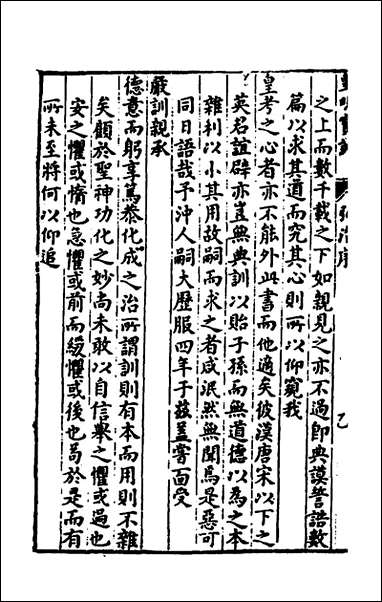 之上而數千載之下如親見之亦不過即典謨誓誥數
篇以求其道而究其心則所以仰窺我
皇考之心者亦不能外此書而他適矣彼漢唐宋以下之
英君誼辟亦豈無典訓以貽子孫而無道德以為之本
雜利以小其用故嗣而求之者咸泯然無聞焉是惡可
同日語哉予沖人嗣大歷服四年于茲蓋嘗面受
嚴訓親承
德意而躬享篤恭化成之治所謂訓則有本而用則不雜
矣顧於聖神功化之妙尚未敢以自信舉之懼或過也
安之懼或惰也急懼或前而緩懼或後也苟於是而有
所未至將何以仰追